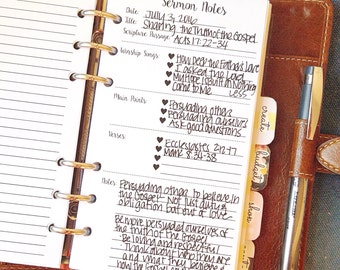 Sermon Notes
Date: July 3, 2016
Title: Sharing the Truth of the Gospel
Scripture Passage: Acts 17:22-34
Worship Songs:
♥ How Deep the Father's Love
♥ I asked the Lord
♥ My Hope is Built on Nothing Less
♥ Come to Me
Main Points:
♥ Persuading others
♥ Persuading ourselves
♥ Ask good questions
Verses:
♥ Ecclesiastes 2:12-17
♥ Mark 8:34-38
Notes:
Persuading others to believe in
the Gospel - Not just out of
obligation but out of love.
Be more persuaded ourselves of
the truth of the Gospel
Be loving and respectful
Think about who they are
and what they believe
how the
create
budget